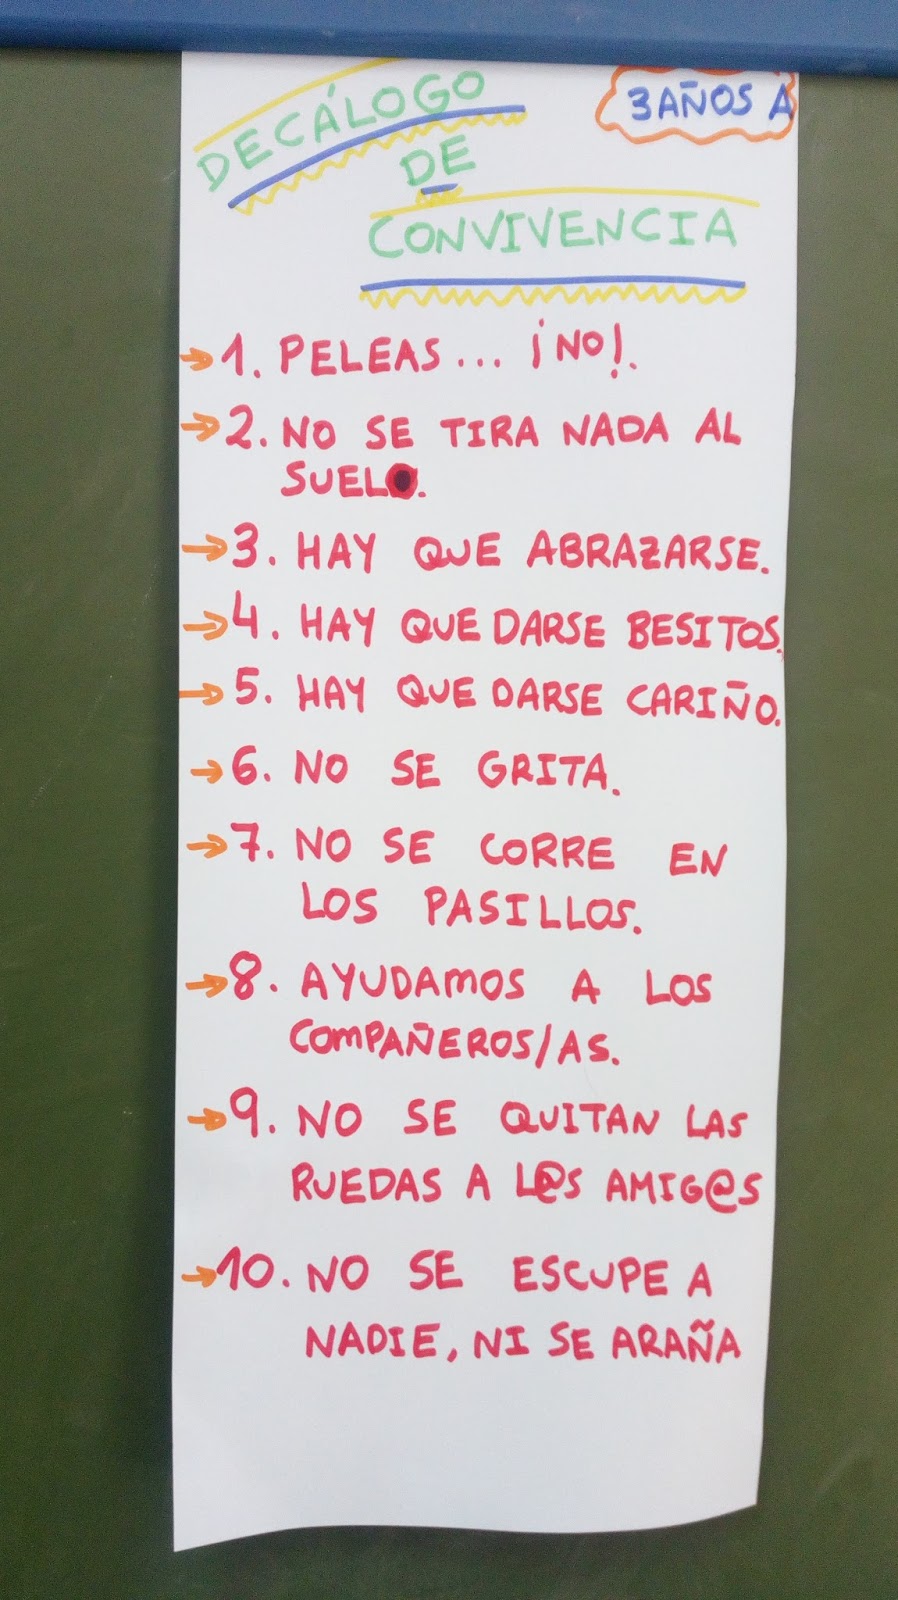 DECÁLOGO
3 AÑOS A
DE
CONVIVENCIA
→1. PELEAS... ¡NO!.
→2. NO SE TIRA NADA AL
SUELO.
→3. HAY QUE ABRAZARSE.
→4. HAY QUE DARSE BESITOS.
→5. HAY QUE DARSE CARIÑO.
→6. NO SE GRITA.
→7. NO SE CORRE EN
LOS PASILLOS.
→8. AYUDAMOS A LOS
COMPAÑEROS/AS.
→9. NO SE QUITAN LAS
RUEDAS A L@S AMIG@S
→10. NO SE ESCUPE A
NADIE, NI SE ARAÑA